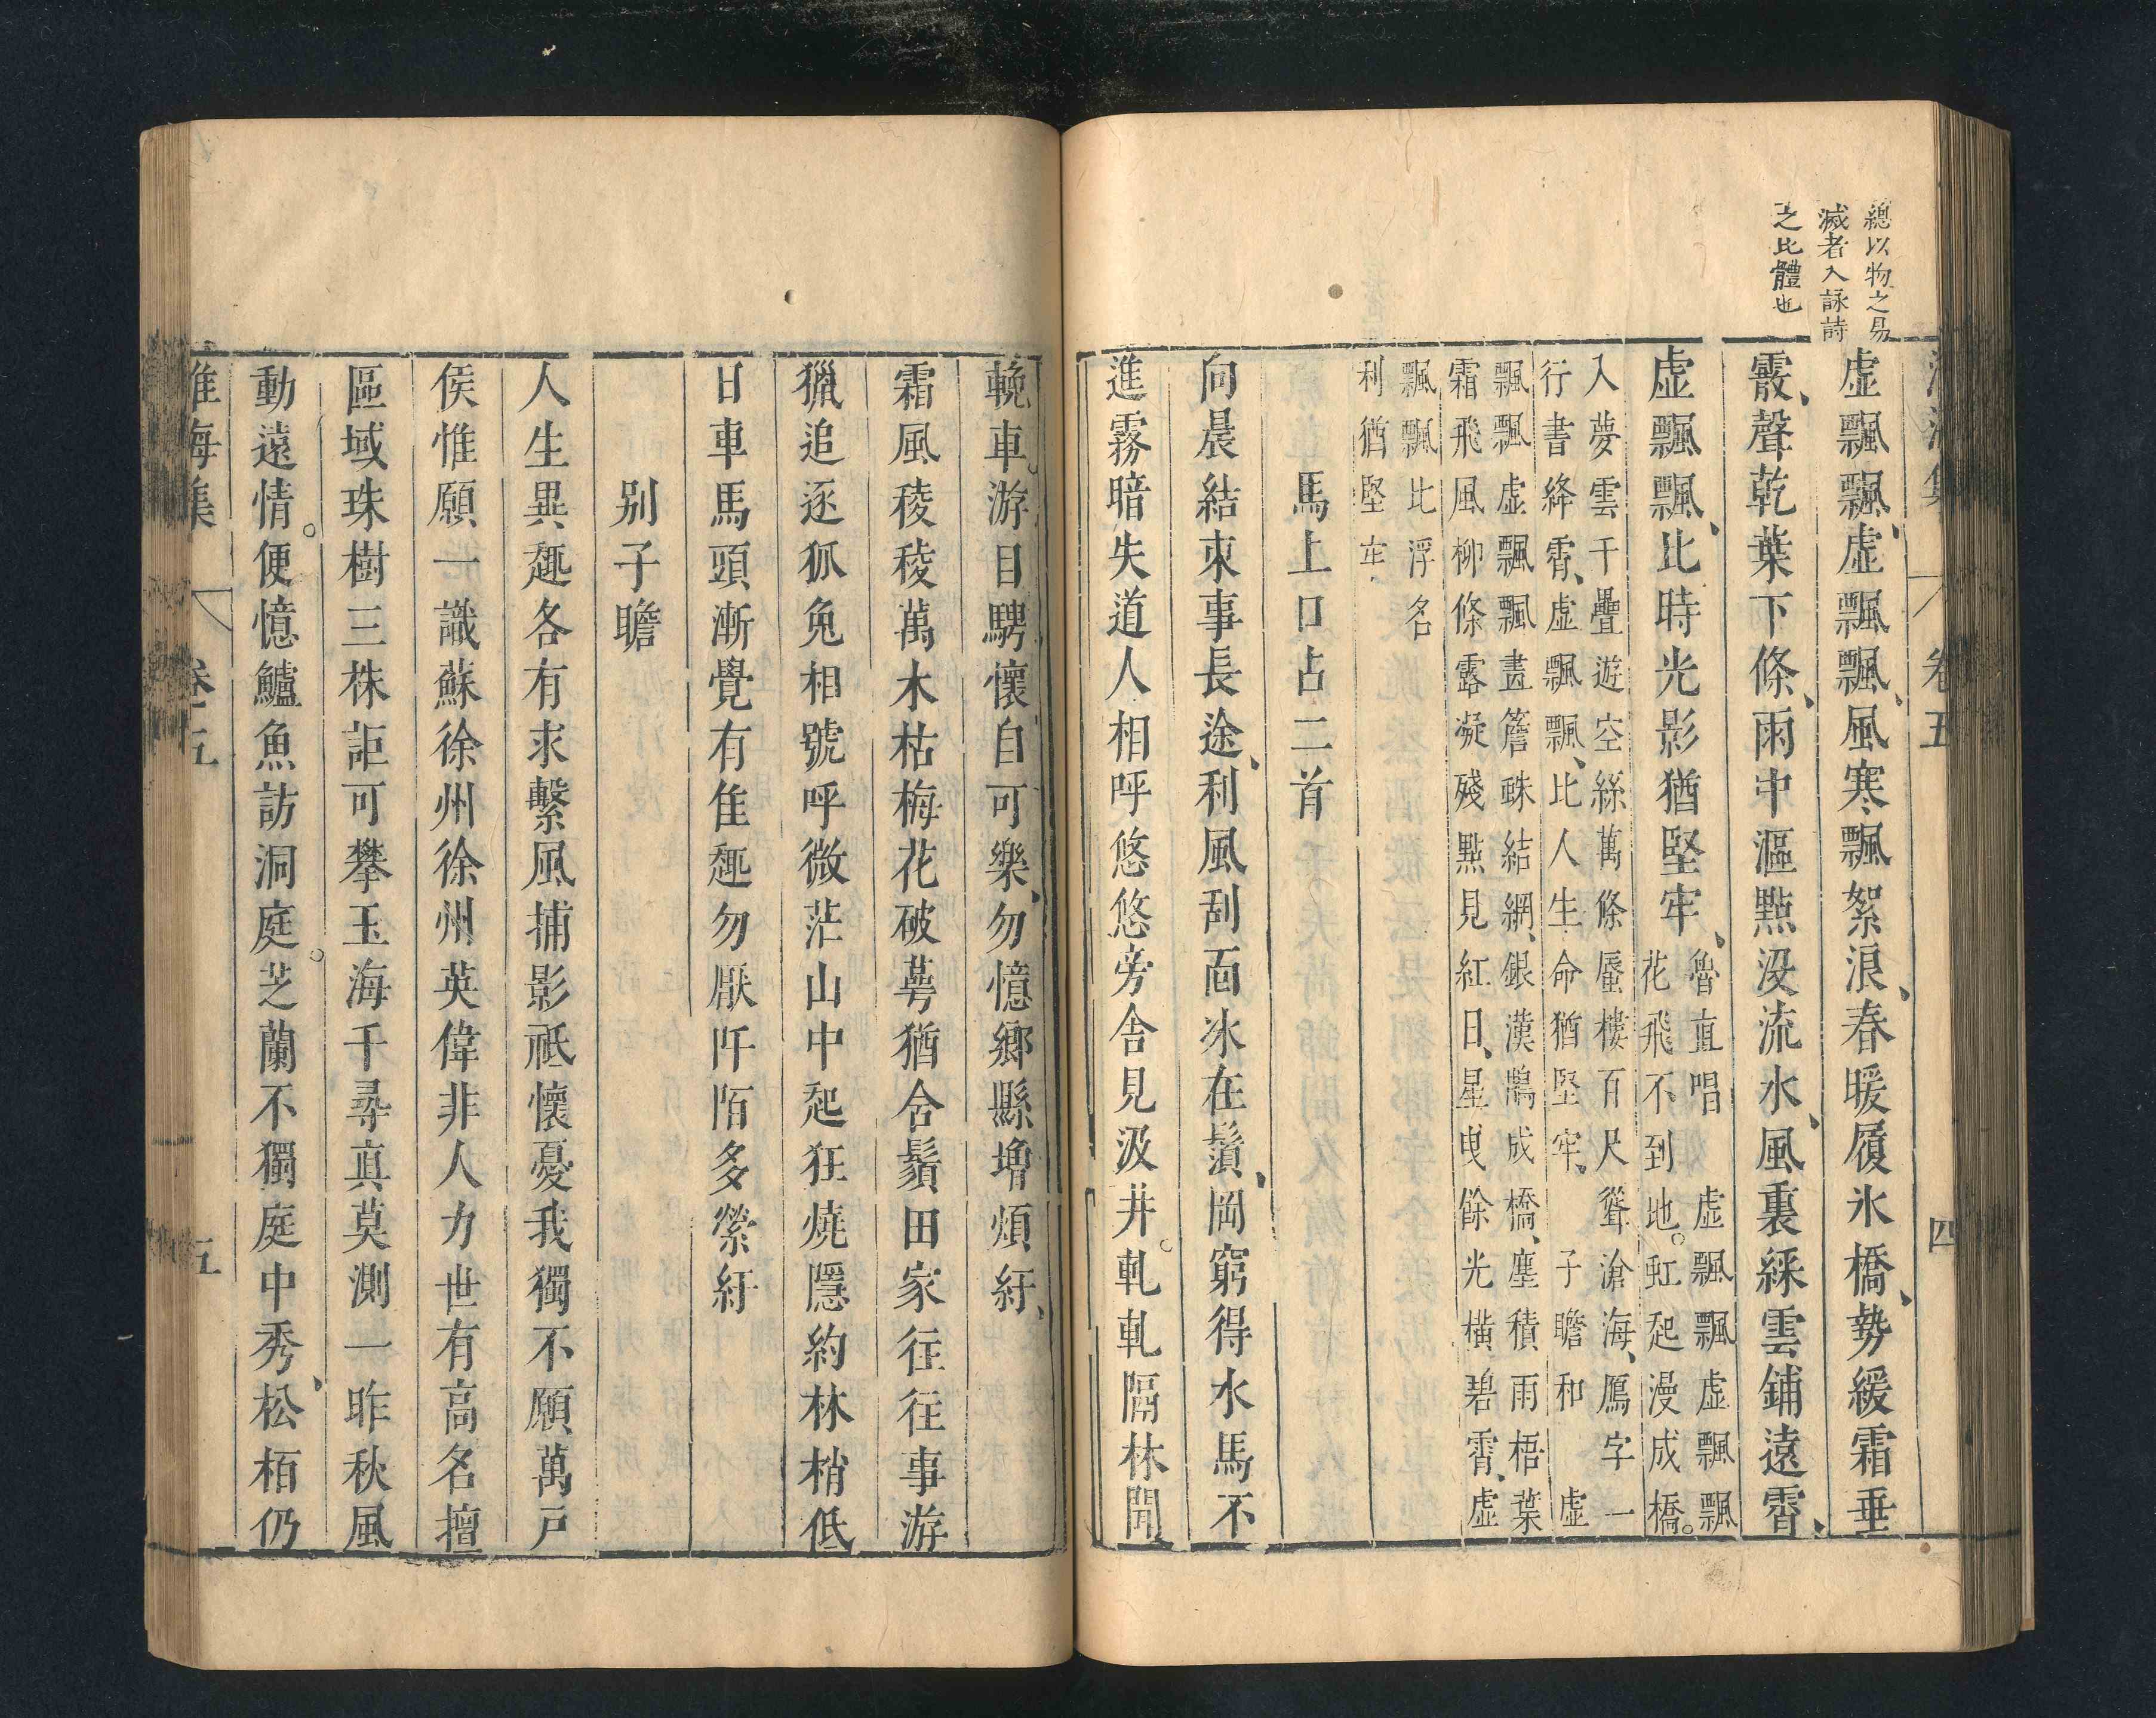 總以物之易
滅者入詠詩
之比體也
卷五 四
虛飄飄、虛飄飄、風寒飄絮浪、春暖履氷橋、勢緩霜垂
霰、聲乾葉下條、雨中漚點没流水、風裏綵雲鋪遠霄、
虛飄飄、比時光影猶堅牢、
魯直唱 虛飄飄虛飄飄
花飛不到地。虹起漫成橋。
入夢雲千疊遊空絲萬條蜃樓百尺聳滄海、鴈字一
行書絳霄、虛飄飄、比人生命猶堅牢、 子瞻和 虛
飄飄虛飄飄畫簷蛛結網、銀漢鵲成橋、塵積雨梧葉
霜飛風柳條露凝殘點見紅日、星曳餘光橫碧霄、虛
飄飄比浮名
利猶堅牢
馬上口占二首
向晨結束事長途、利風刮面冰在鬚、岡窮得水馬不
進霧暗失道人相呼悠悠旁舍見汲井。軋軋隔林聞
輓車。游目騁懷自可樂、勿憶鄉縣增煩紆、
霜風稜稜萬木枯梅花破萼猶含鬚田家往往事游
獵追逐狐兔相號呼微茫山中起狂燒隱約林梢低
日車馬頭漸覺有佳趣勿厭阡陌多縈紆
别子瞻
人生異趣各有求繫風捕影祇懷憂我獨不願萬戸
侯惟願一識蘇徐州徐州英偉非人力世有高名擅
區域珠樹三株詎可攀玉海千尋真莫測一昨秋風
動遠情。便憶鱸魚訪洞庭。芝蘭不獨庭中秀、松栢仍
淮海集 卷五 五